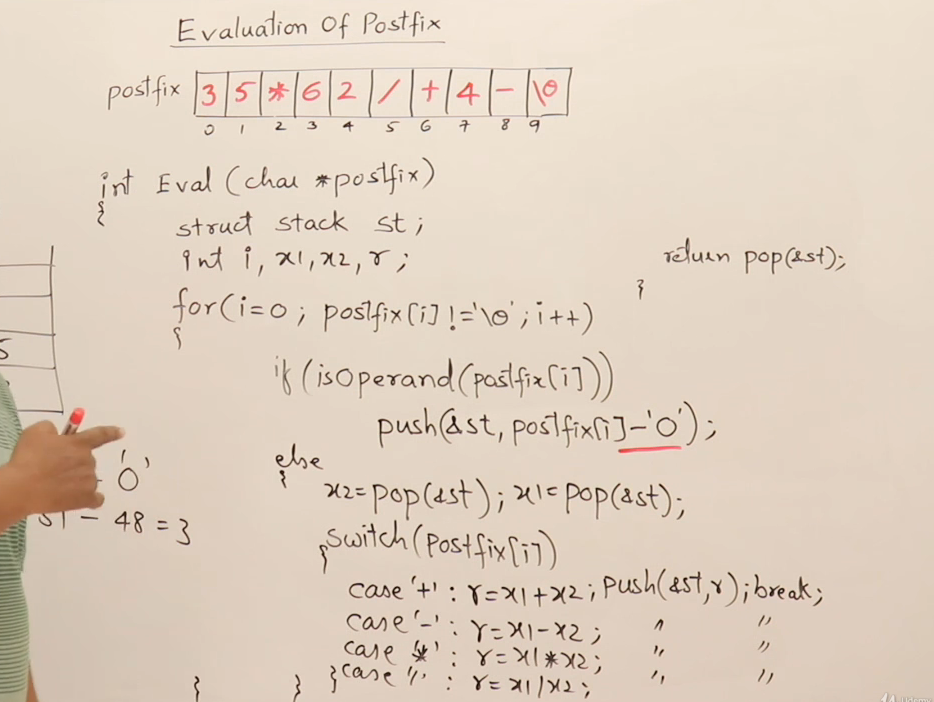 Evaluation Of Postfix
postfix 3 5 * 6 2 / + 4 - \0
0 1 2 3 4 5 6 7 8 9
int Eval (char *postfix)
{
struct stack st;
int i, x1, x2, r;
for(i=0; postfix[i]!='\0'; i++)
{
if (isOperand(postfix[i]))
push(&st, postfix[i]-'0');
else
{
x2=pop(&st); x1=pop(&st);
switch(postfix[i])
{
case '+': r=x1+x2; push(&st,r); break;
case '-': r=x1-x2; " "
case '*': r=x1*x2; " "
case '/': r=x1/x2; " "
}
}
}
return pop(&st);
}
5
- '0'
51 - 48 = 3
Udemy